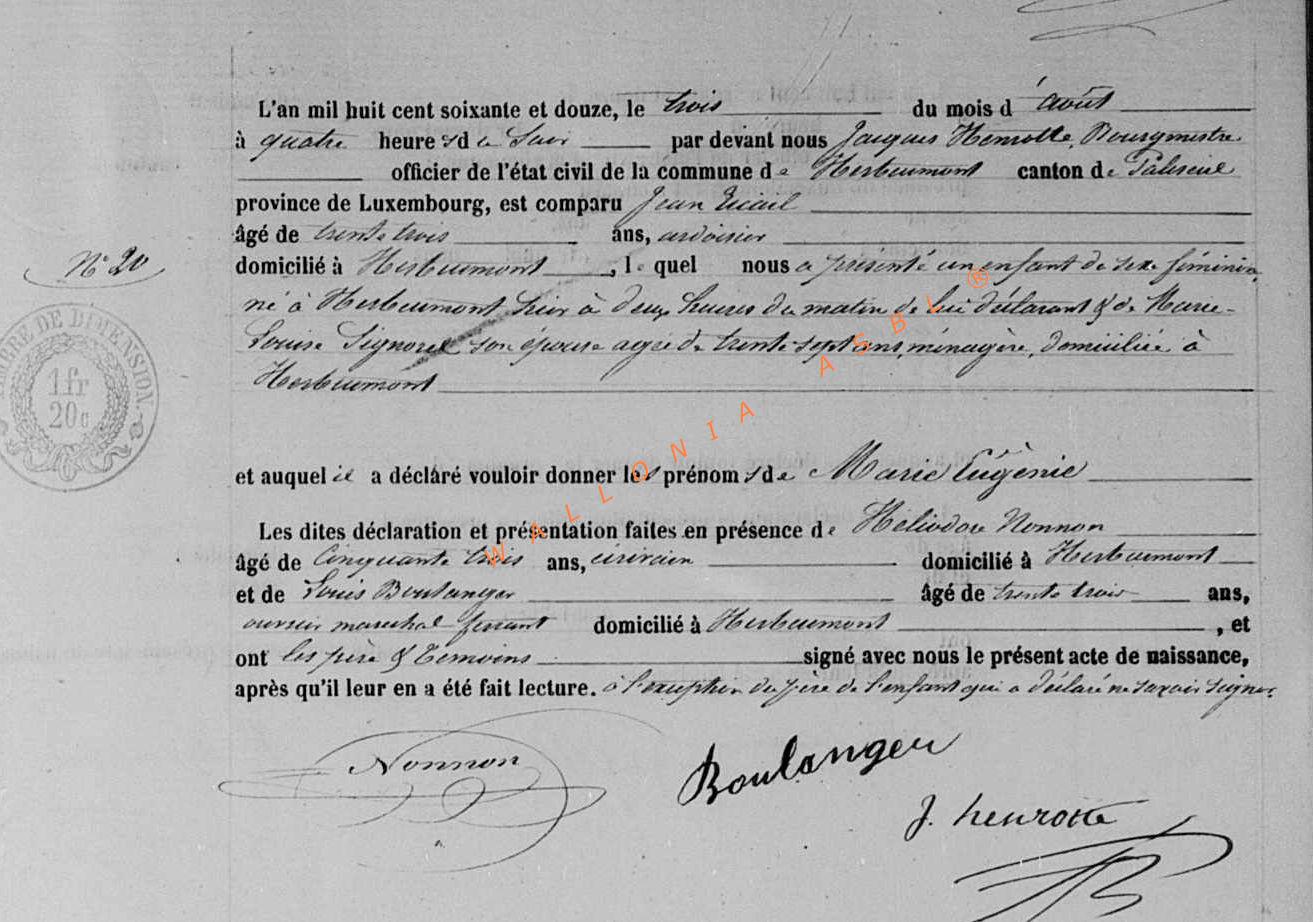 L'an mil huit cent soixante et douze, le trois du mois d'août
à quatre heures du Soir par devant nous Jacques Henrotte, Bourgmestre
officier de l'état civil de la commune de Herbeumont canton de Paliseul
province de Luxembourg, est comparu Jean
âgé de trente trois ans, ardoisier
N° 20
domicilié à Herbeumont, lequel nous a présenté un enfant de sexe féminin,
né à Herbeumont hier à deux heures du matin de lui déclarant & de Marie-
TIMBRE DE DIMENSION.
1 fr
20c
Louise Signorel son épouse agée de trente sept ans, ménagère, domiciliée à
Herbeumont
et auquel il a déclaré vouloir donner les prénoms de Marie Eugènie
Les dites déclaration et présentation faites en présence de Heliodore Nonnon
âgé de Cinquante trois ans, écrivain domicilié à Herbeumont
et de Louis Boulanger âgé de trente trois ans,
ouvrier marechal ferrant domicilié à Herbeumont, et
ont les père & Témoins signé avec nous le présent acte de naissance,
après qu'il leur en a été fait lecture. à l'exception du père de l'enfant qui a déclaré ne savoir signer
Nonnon
Boulanger
J. henrotte
WALLONIA ASBL ®